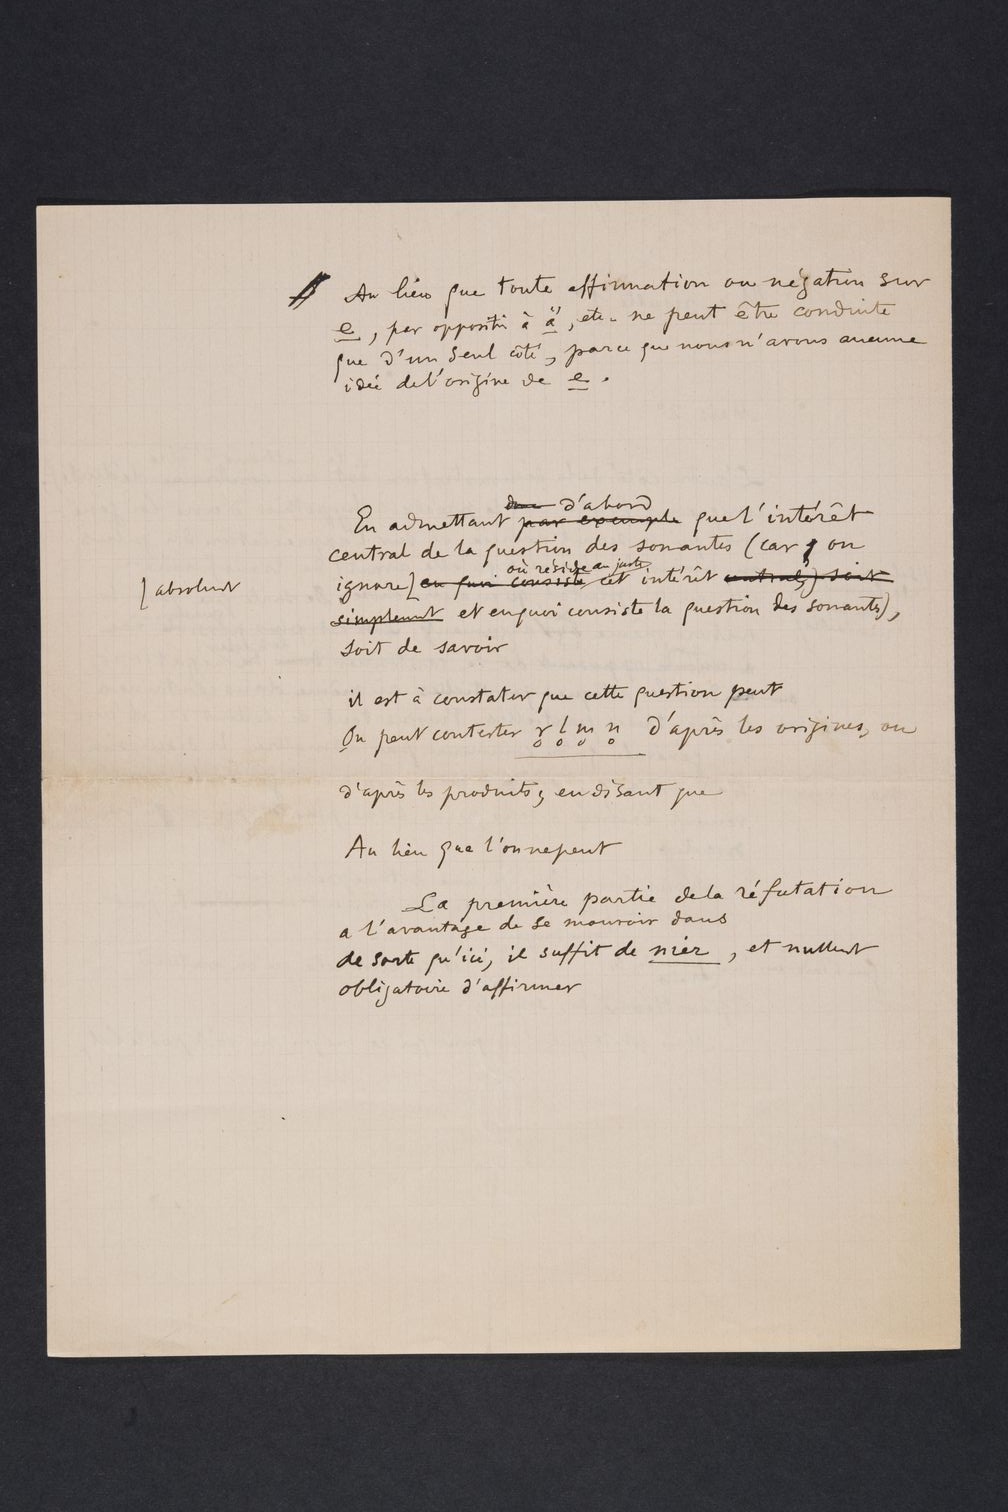 Au lieu que toute affirmation ou négation sur
e, par oppositn à ä, etc. ne peut être conduite
que d'un seul côté, parce que nous n'avons aucune
idée de l'origine de e.
donc d'abord
En admettant par exemple que l'intérêt
central de la question des sonantes (car on
où réside au juste
ignore[ en quoi consiste cet intérêt central,) soit
[ absolumt
simplemnt et en quoi consiste la question des sonantes),
soit de savoir
il est à constater que cette question peut
On peut contester r̥ l̥ m̥ n̥ d'après les origines, ou
d'après les produits, en disant que
Au lieu que l'on ne peut
La première partie de la réfutation
a l'avantage de se mouvoir dans
de sorte qu'ici, il suffit de nier, et nullemt
obligatoire d'affirmer